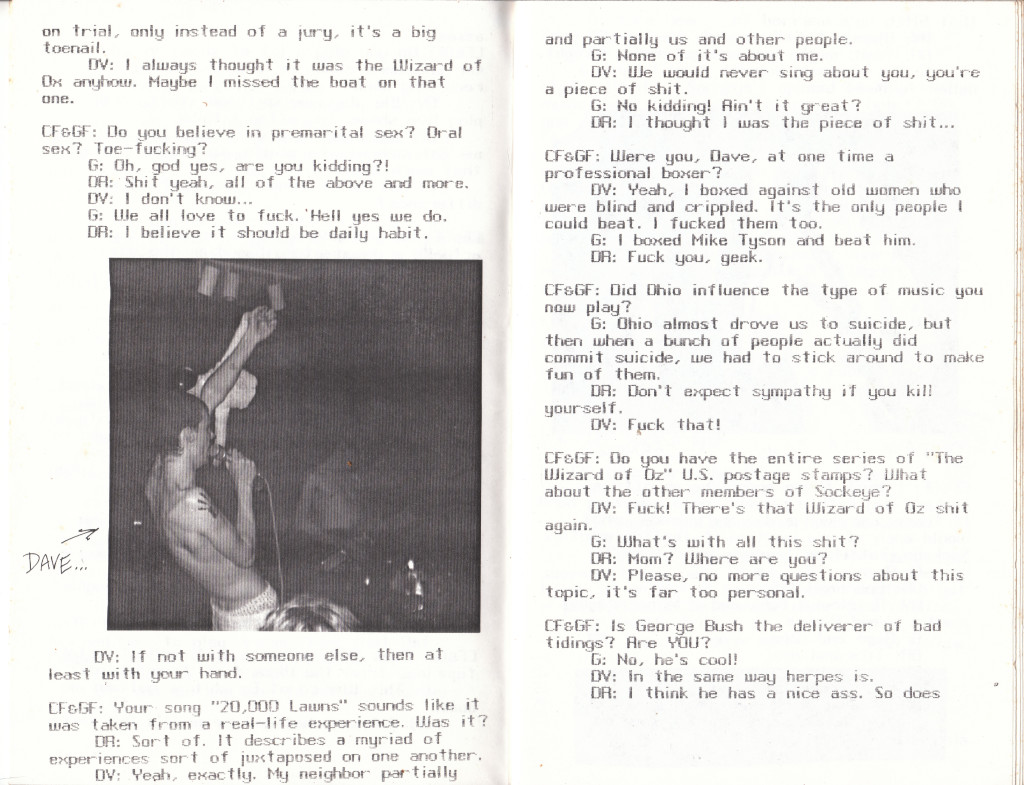 on trial, only instead of a jury, it's a big
toenail.
DV: I always thought it was the Wizard of
Ox anyhow. Maybe I missed the boat on that
one.
CF&GF: Do you believe in premarital sex? Oral
sex? Toe-fucking?
G: Oh, god yes, are you kidding?!
DR: Shit yeah, all of the above and more.
DV: I don't know...
G: We all love to fuck. Hell yes we do.
DR: I believe it should be daily habit.
DAVE...
DV: If not with someone else, then at
least with your hand.
CF&GF: Your song "20,000 Lawns" sounds like it
was taken from a real-life experience. Was it?
DR: Sort of. It describes a myriad of
experiences sort of juxtaposed on one another.
DV: Yeah, exactly. My neighbor partially
and partially us and other people.
G: None of it's about me.
DV: We would never sing about you, you're
a piece of shit.
G: No kidding! Ain't it great?
DR: I thought I was the piece of shit...
CF&GF: Were you, Dave, at one time a
professional boxer?
DV: Yeah, I boxed against old women who
were blind and crippled. It's the only people I
could beat. I fucked them too.
G: I boxed Mike Tyson and beat him.
DR: Fuck you, geek.
CF&GF: Did Ohio influence the type of music you
now play?
G: Ohio almost drove us to suicide, but
then when a bunch of people actually did
commit suicide, we had to stick around to make
fun of them.
DR: Don't expect sympathy if you kill
yourself.
DV: Fuck that!
CF&GF: Do you have the entire series of "The
Wizard of Oz" U.S. postage stamps? What
about the other members of Sockeye?
DV: Fuck! There's that Wizard of Oz shit
again.
G: What's with all this shit?
DR: Mom? Where are you?
DV: Please, no more questions about this
topic, it's far too personal.
CF&GF: Is George Bush the deliverer of bad
tidings? Are YOU?
G: No, he's cool!
DV: In the same way herpes is.
DR: I think he has a nice ass. So does